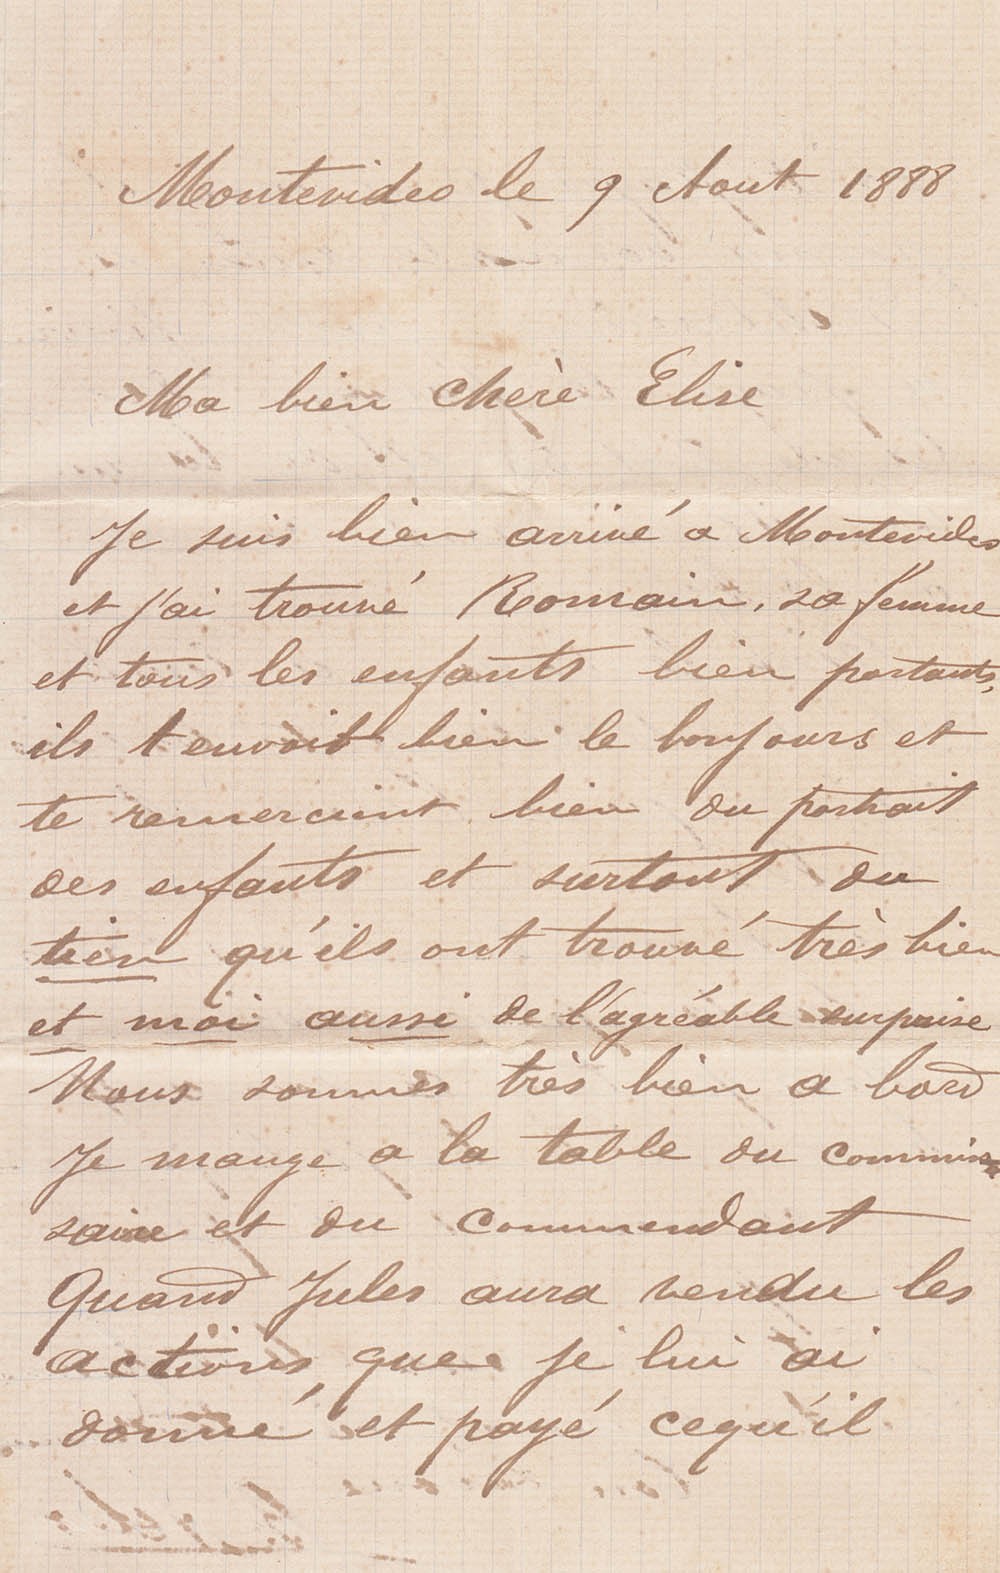 Montevideo le 9 Aout 1888
Ma bien chère Elise
Je suis bien arrivé a Montevideo
et j'ai trouvé Romain, sa femme
et tous les enfants bien portants,
ils t envoit bien le bonjours et
te remercient bien du portrait
des enfants et surtout du
tien qu'ils ont trouvé très bien
et moi aussi de l'agréable surprise
Nous sommes très bien a bord
Je mange a la table du commis
saire et du commendant
Quand Jules aura vendu les
actions, que je lui ai
donné et payé cequ'il